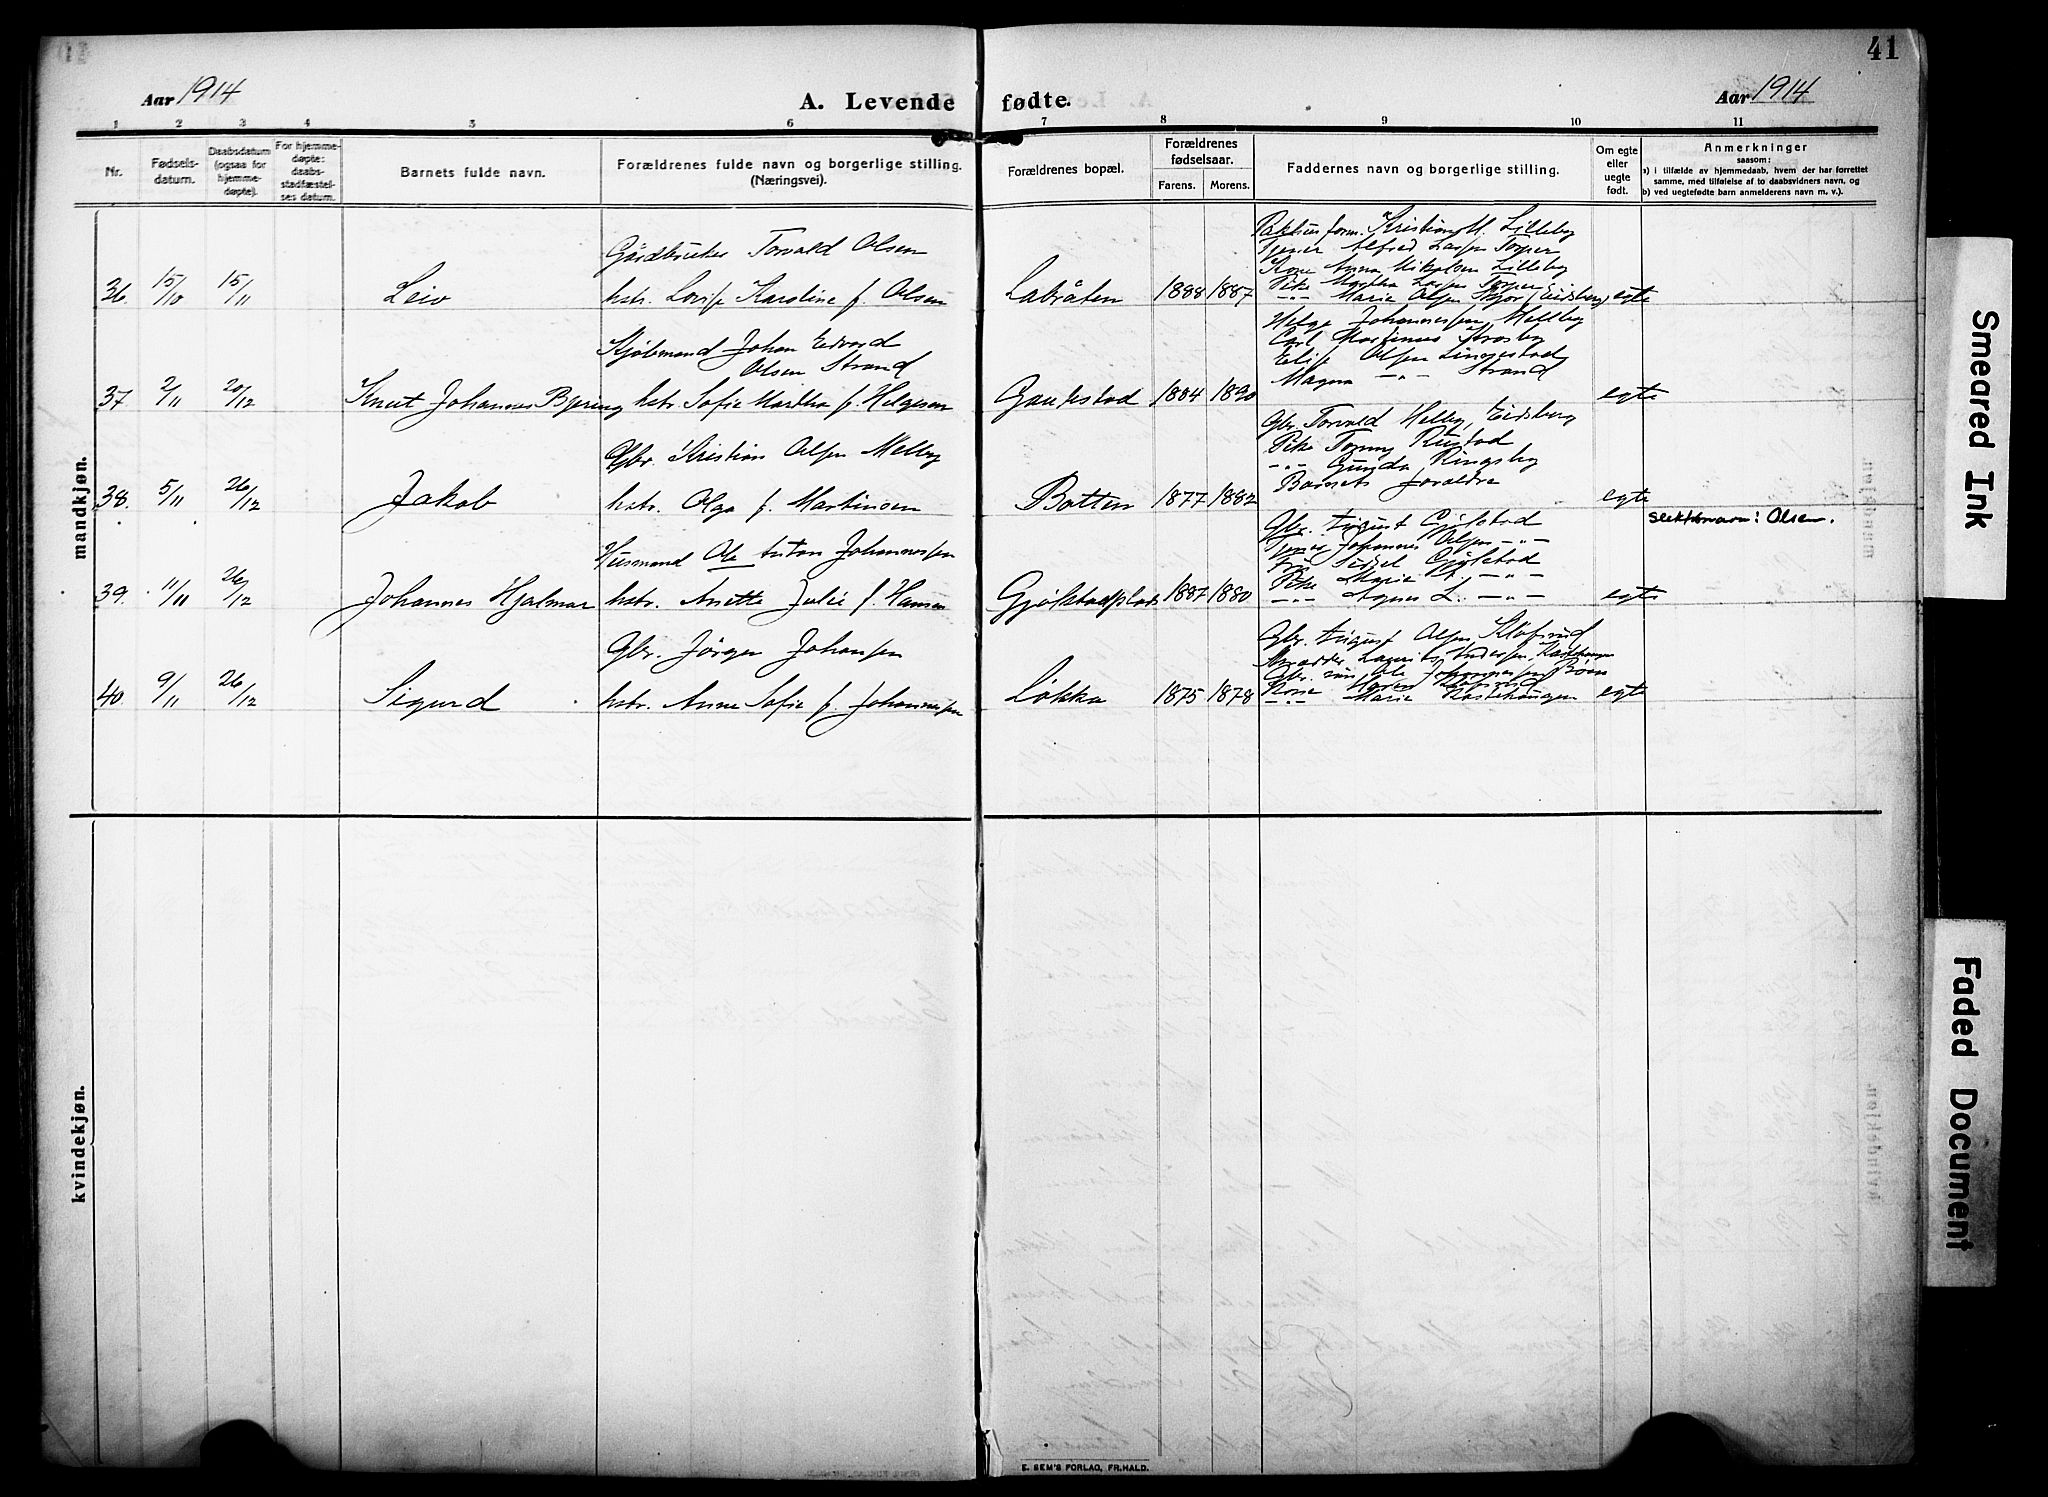 41
Aar 1914
A. Levende fødte.
Aar 1914
1 2 3 4 5 6 7 8 9 10 11
Nr.
Fødsels-
datum.
Daabsdatum
(ogsaa for
hjemme-
døpte).
For hjemme-
døpte:
daabs-
stadfæstel-
ses datum.
Barnets fulde navn.
Forældrenes fulde navn og borgerlige stilling.
(Næringsvei).
Forældrenes bopæl.
Forældrenes
fødselsaar.
Farens. Morens.
Faddernes navn og borgerlige stilling.
Om egte
eller
uegte
født.
Anmerkninger
saasom:
a) i tilfælde av hjemmedaab, hvem der har forrettet
samme, med tilføielse af to daabsvidners navn, og
b) ved uegtefødte barn anmelderens navn m. v.).
mandkjøn.
Gårdbruker Torvald Olsen
36. 15/10 15/11 Leiv hstr. Lovise Karoline f. Olsen Labråten 1888 1887 egte
Kristian M. Lilleby
Tjener Alfred Larsen Torper
Kone Anna Mikalsen Lilleby
Pike Martha Larsen Torper
-"- Marie Olsen Skjør (Eidsberg)
Kjøbmand Johan Edvard
Olsen Strand
37 2/11 20/12 Knut Johannes Bjering hstr. Sofie Martha f. Helgesen Gaukstad 1884 1890 egte
Helge Johannessen Melleby
Carl Martinius
Elise Olsen Lingestad
Magna -"- Strand
Gbr. Kristian Olsen Melleby
38. 5/11 26/12 Jakob hstr. Olga f. Martinsen Botten 1877 1882 egte
Gbr. Torvald Helleby, Eidsberg
Pike Tomny Rustad
-"- Gunda Ringsby
Barnets foreldre
Husmand Ole Anton Johannessen
39. 11/11 26/12 Johannes Hjalmar hstr. Anette Julie f. Hansen Gjølstadplads 1887 1880 egte
Gbr. August Gjølstad
Tjener Johannes Olsen -"-
Fru Sidsel Gjølstad
Pike Marie -"-
-"- Agnes L. -"-
slektsnavn: Olsen.
Gbr. Jørgen Johansen
40. 9/11 26/12 Sigurd hstr. Anne Sofie f. Johannessen Løkka 1875 1878 egte
Gbr. August Olsen Kløfsrud
Lauritz Andersen,
Gbr. søn Ole Johannessen Bøen
Kone Maren Kløfsrud
-"- Marie Kastehaugen
kvindekjøn.
E. SEM'S FORLAG, FR.HALD.
Smeared Ink
Faded Document